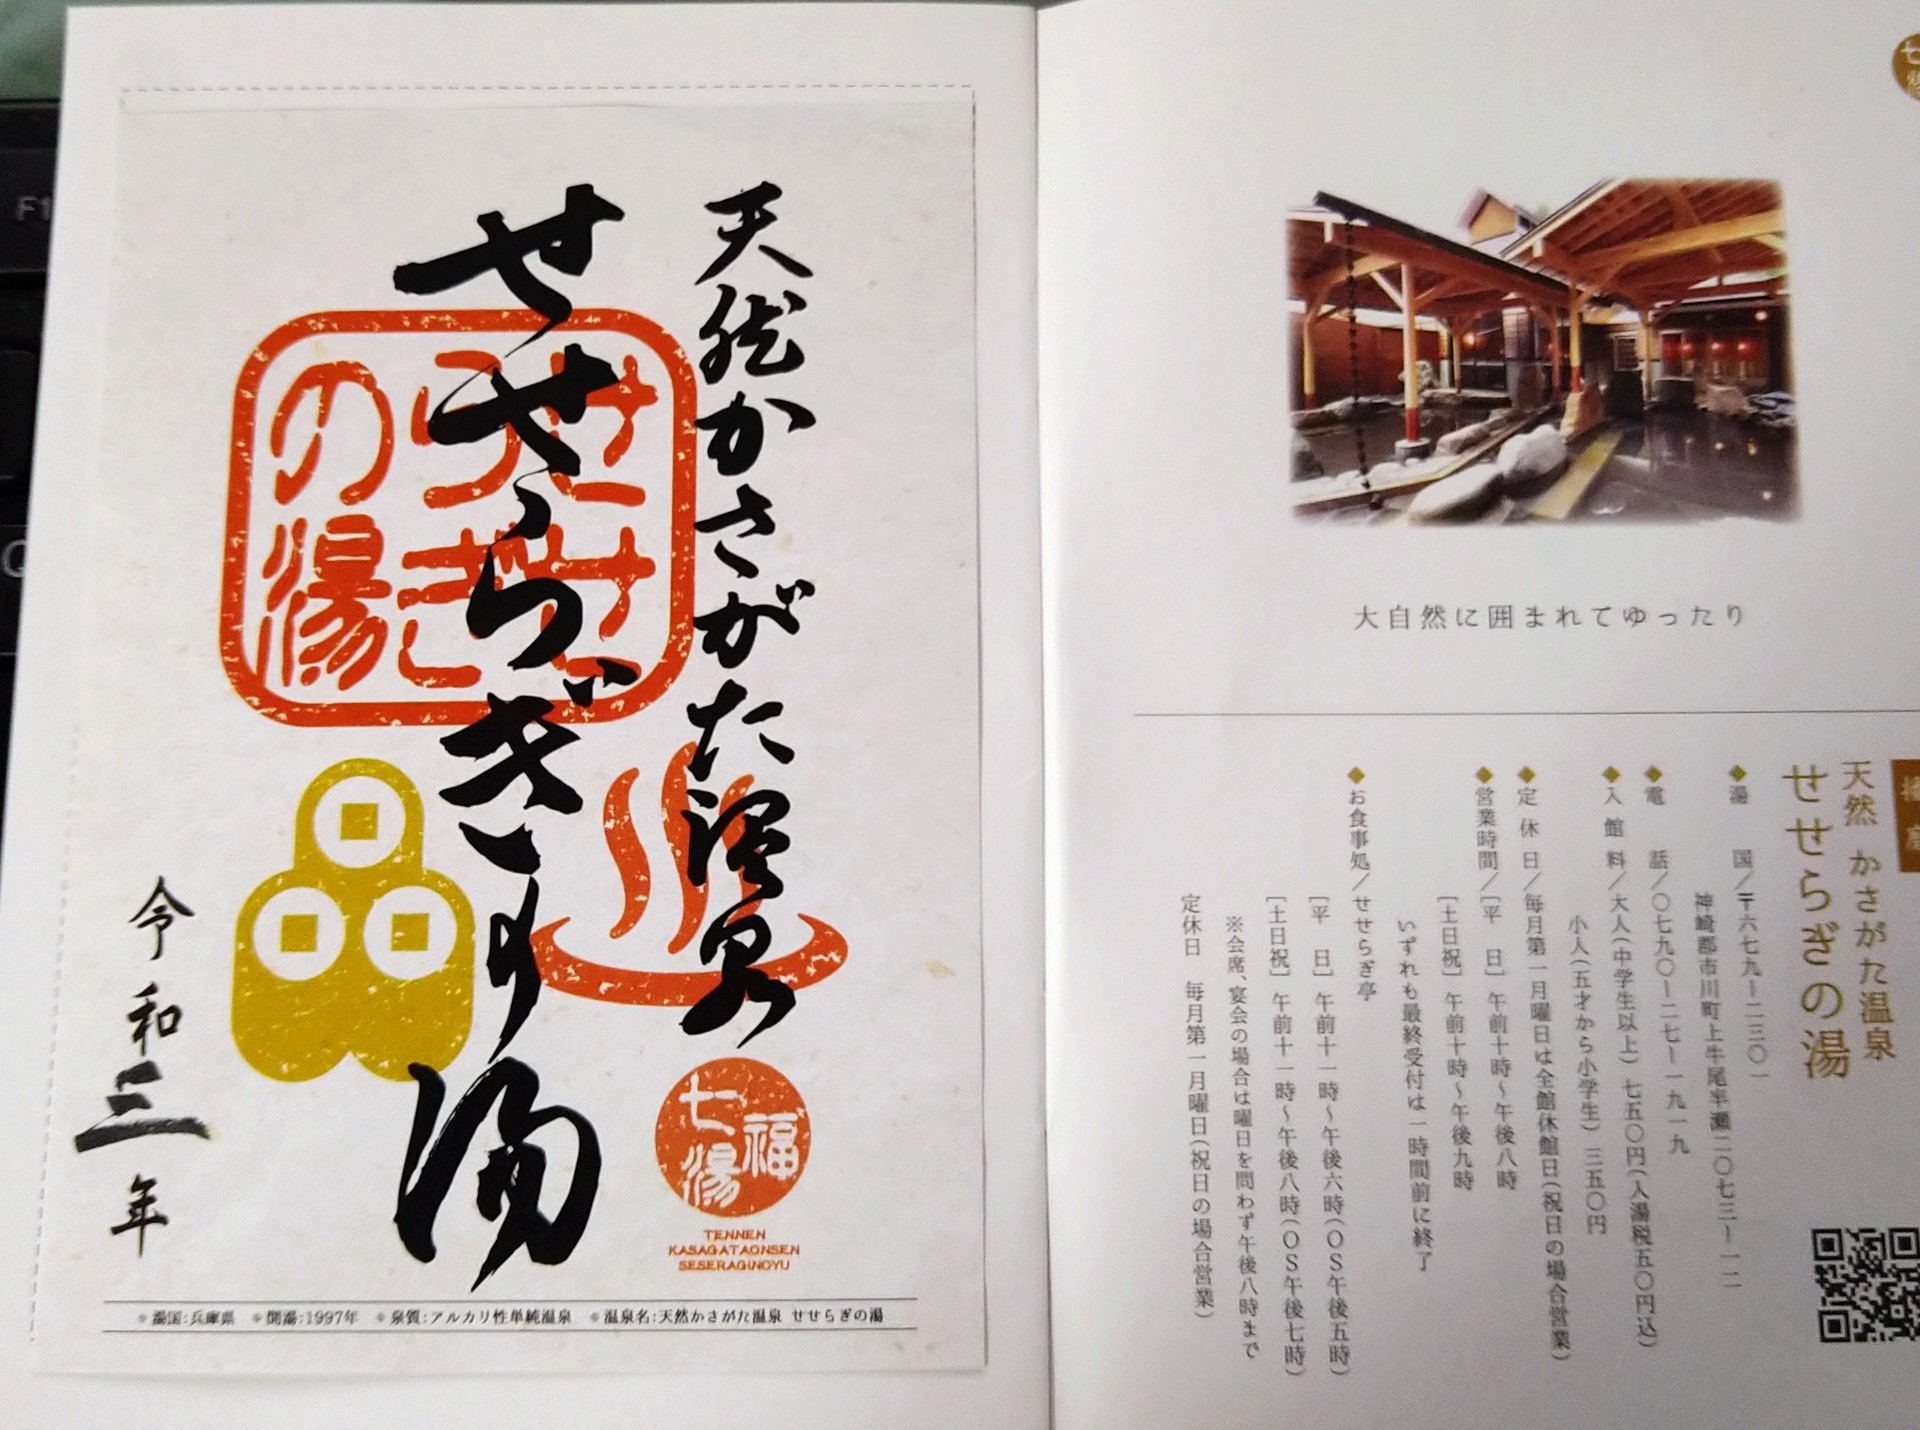 天然かさがた温泉
せせらぎの湯
せせ
らぎ
の湯
令和三年
福
七湯
TENNEN
KASAGATAONSEN
SESERAGINOYU
※湯国:兵庫県 ※開湯:1997年 ※泉質:アルカリ性単純温泉 ※温泉名:天然かさがた温泉 せせらぎの湯
大自然に囲まれてゆったり
天然 かさがた温泉
せせらぎの湯
◆湯 国/〒六七九ー二三〇一
神崎郡市川町上牛尾半瀬二〇七三ー一二
◆電 話/〇七九〇ー二七ー一九一九
◆入館料/大人(中学生以上) 七五〇円(入湯税五〇円込)
小人(五才から小学生) 三五〇円
◆定休日/毎月第一月曜日は全館休館日(祝日の場合営業)
◆営業時間/[平 日] 午前十時〜午後八時
[土日祝] 午前十時〜午後九時
いずれも最終受付は一時間前に終了
◆お食事処/せせらぎ亭
[平 日] 午前十一時〜午後六時(OS午後五時)
[土日祝] 午前十一時〜午後八時(OS午後七時)
※会席、宴会の場合は曜日を問わず午後八時まで
定休日 毎月第一月曜日(祝日の場合営業)